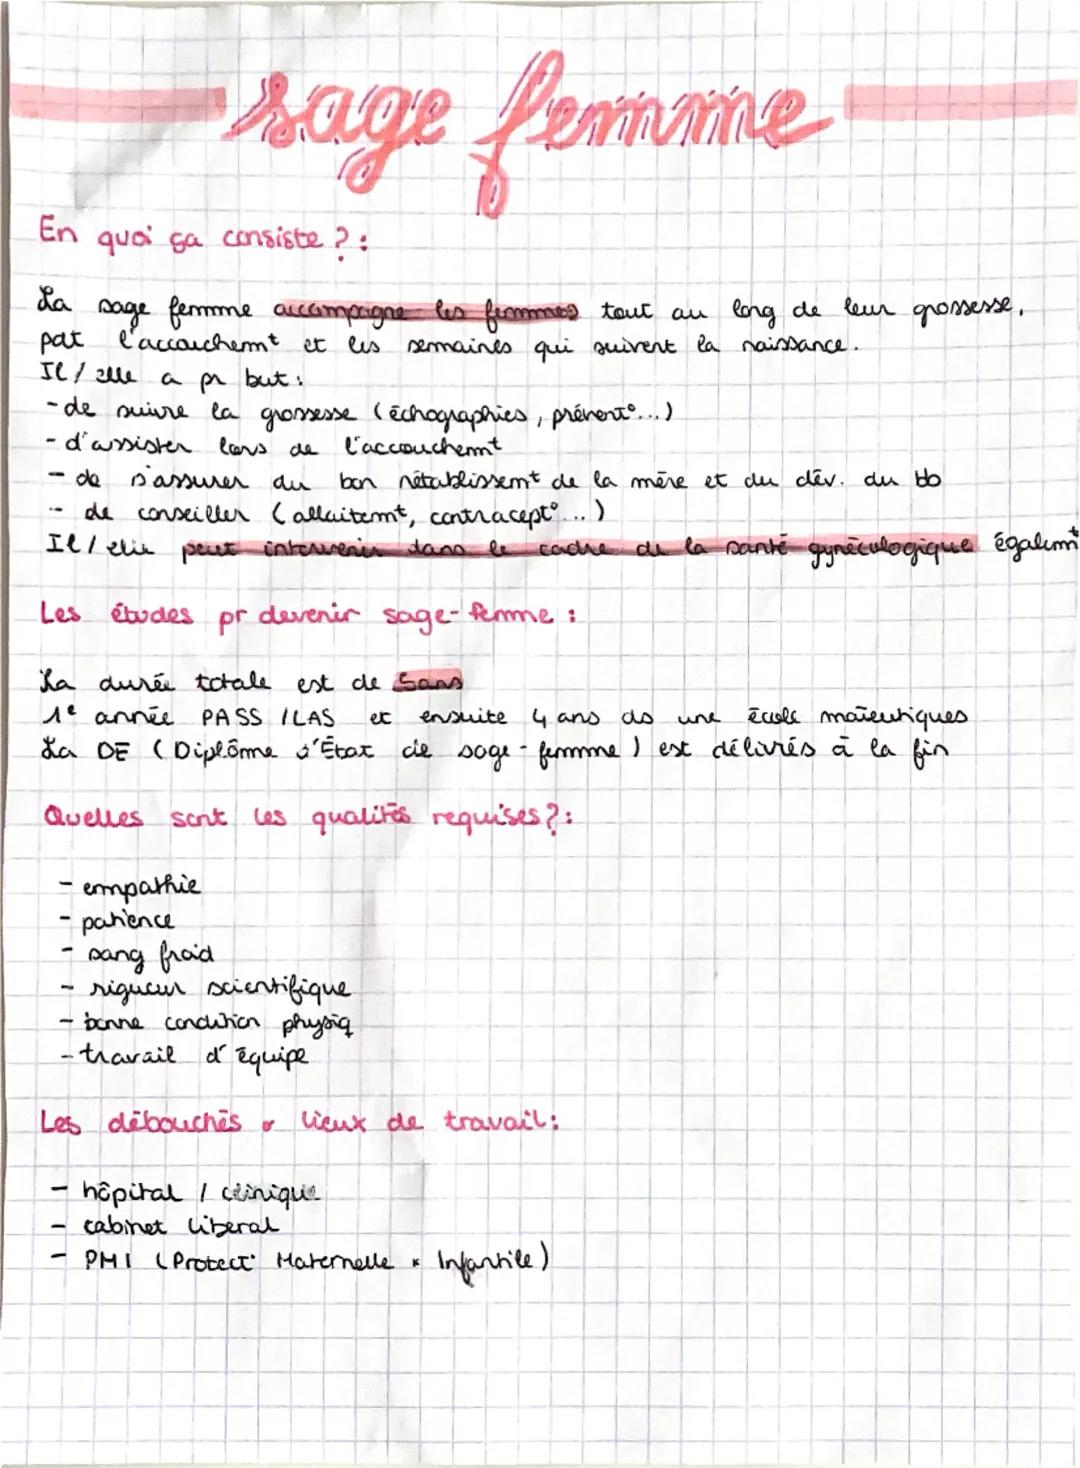 sage femme
En quoi ça consiste ? :
La sage femme accompagne les femmes tout au long de leur grossesse,
pdt l'accouchemt et les semaines qui suivent la naissance.
Il / elle a pr but :
- de suivre la grossesse (échographies, prévent°...)
- d'assister lors de l'accouchemt
- de s'assurer du bon rétablissemt de la mère et du dév. du bb
- de conseiller (allaitemt, contracept°...)
Il / elle peut intervenir dans le cadre de la santé gynécologique égalemt
Les études pr devenir sage-femme :
La durée totale est de 5ans
1e année PASS / LAS et ensuite 4 ans ds une école maïeutiques
La DE (Diplôme d'État de sage-femme) est délivrés à la fin
Quelles sont les qualités requises ? :
- empathie
- patience
- sang froid
- rigueur scientifique
- bonne condition physiq
- travail d'équipe
Les débouchés & lieux de travail :
- hôpital / clinique
- cabinet libéral
- PMI (Protect° Maternelle & Infantile)